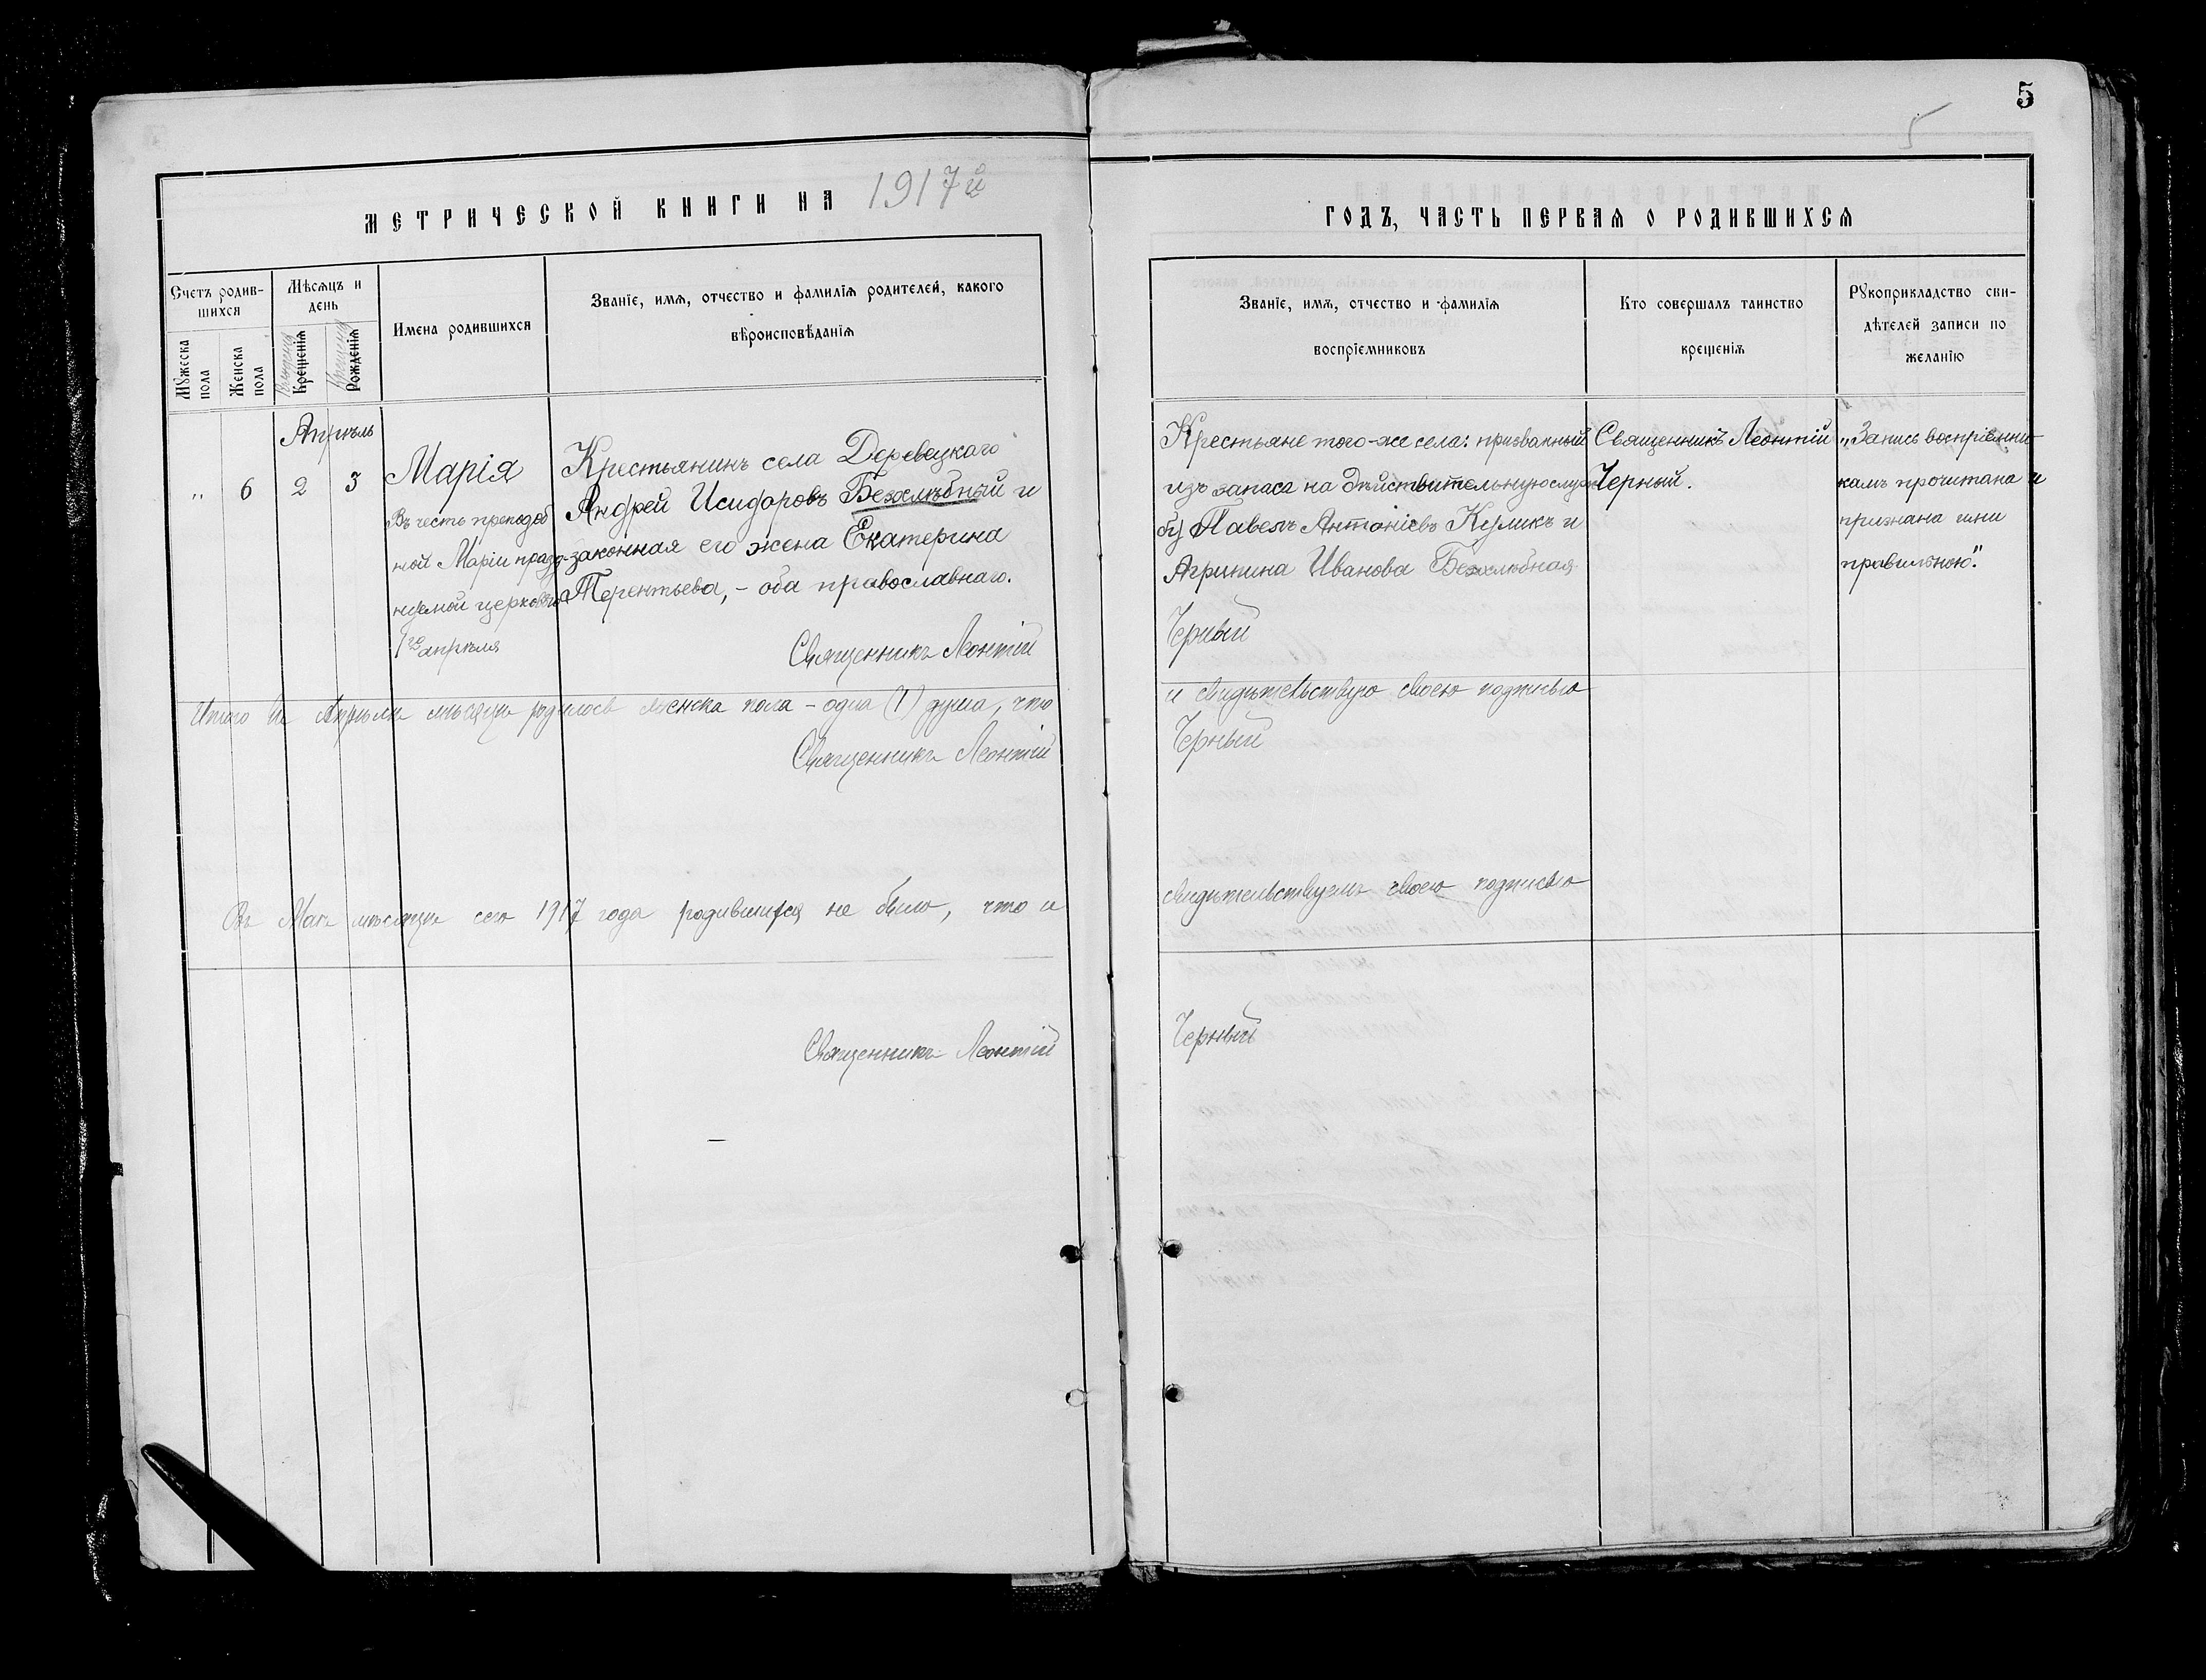 5
5
МЕТРИЧЕСКОЙ КНИГИ НА 1917й
Счетъ родив-
шихся
Мужеска
пола
Женска
пола
Мѣсяцъ и
день
Крещенія
Рожденія
Имена родившихся
Званіе, имя, отчество и фамилія родителей, какого
вѣроисповѣданія
Апрѣль
" 6 2 3
Марія
Въ честь преподоб
ной Маріи празд-
нуемой церковію
1го апрѣля
Крестьянинъ села Деревецкаго
Андрей Исидоровъ Безхлѣбный и
законная его жена Екатерина
Терентьева, – оба православнаго.
Священникъ Леонтій
Итого въ Апрѣлѣ мѣсяцѣ родилось женска пола – одна (1) душа, что
Священникъ Леонтій
Въ Маѣ мѣсяцѣ сего 1917 года родившихся не было, что и
Священникъ Леонтій
ГОДЪ, ЧАСТЬ ПЕРВАЯ О РОДИВШИХСЯ
Званіе, имя, отчество и фамилія
воспріемниковъ
Кто совершалъ таинство
крещенія
Рукоприкладство сви-
дѣтелей записи по
желанію
Крестьяне того-же села: призванный
изъ запаса на дѣйствительную служ-
бу Павелъ Антоніевъ Куликъ и
Агрипина Иванова Безхлѣбная
Черный
Священникъ Леонтій
Черный.
„Запись воспріемни-
камъ прочитана и
признана ими
правильною".
и свидѣтельствую своею подписью
Черный
свидѣтельствуемъ своею подписью
Черный